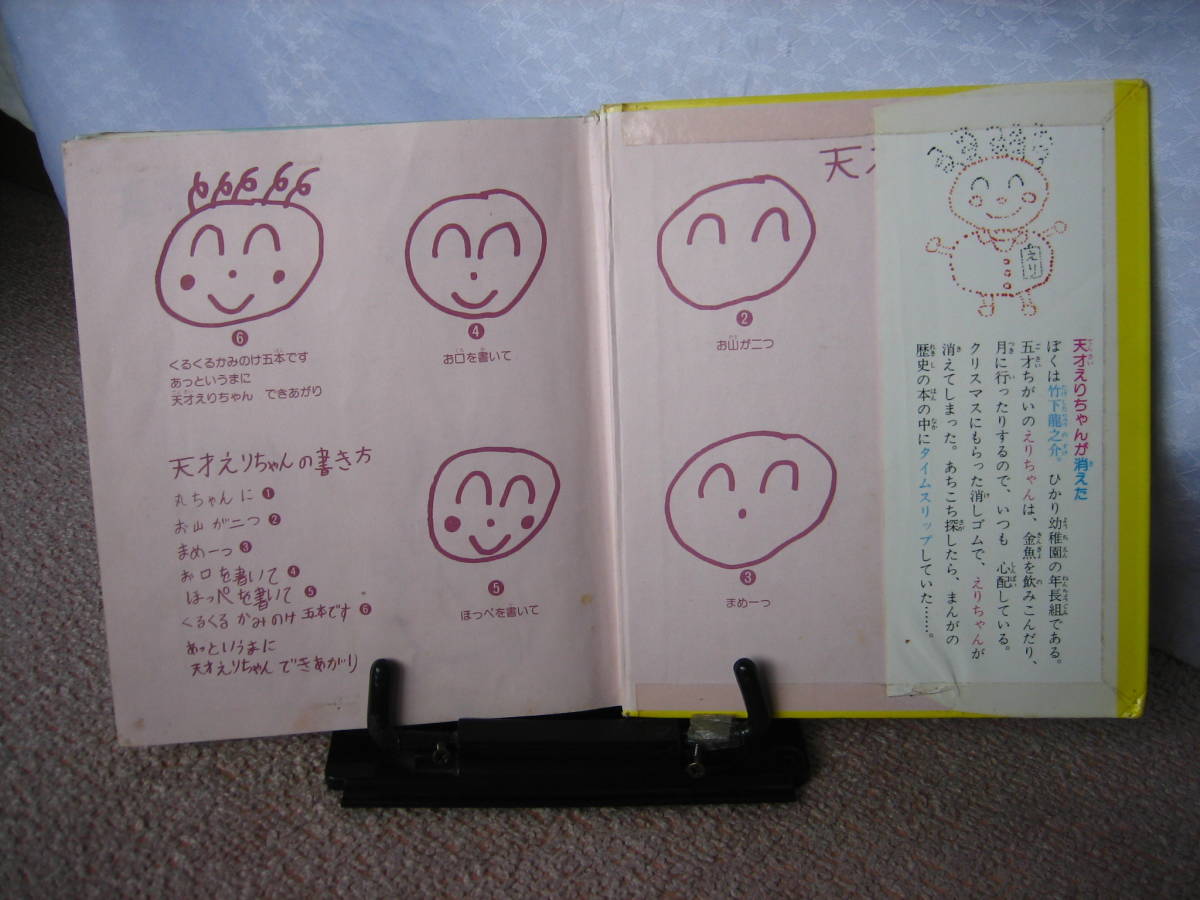 天才えりちゃんが消えた
ぼくは竹下龍之介。ひかり幼稚園の年長組である。
五才ちがいのえりちゃんは、金魚を飲みこんだり、
月に行ったりするので、いつも心配している。
クリスマスにもらった消しゴムで、えりちゃんが
消えてしまった。あちこち探したら、まんがの
歴史の本の中にタイムスリップしていた……。
えり
天才
❷
お山が二つ
❸
まめ一つ
❹
お口を書いて
❺
ほっぺを書いて
❻
くるくるかみのけ五本です
あっというまに
天才えりちゃん できあがり
天才えりちゃんの書き方
丸ちゃんに❶
お山が二つ❷
まめ一つ❸
お口を書いて❹
ほっぺを書いて❺
くるくるかみのけ五本です❻
あっというまに
天才えりちゃんできあがり